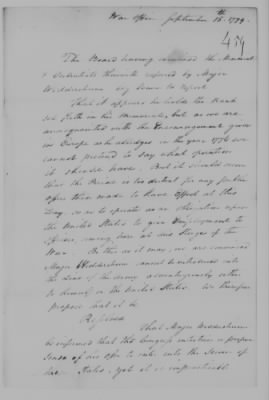 War Office September 15th 1779.
459
The Board having examined the Memorial
& Credentials therewith referred by Major
Wedderburn beg leave to report
That it appears he holds the Rank
set forth in his Memorial, but as we are
unacquainted with the Encouragement given
in Europe as he alledges in the year 1776 we
cannot pretend to say what operation
it should have. But it should seem
that the Period is too distant for any
offer then made to have Effect at this
Day, so as to operate as an obligation upon
the United States to give Employment to
Officers, coming here at the Stages of the
War. Be this as it may, we are convinced
Major Wedderburn cannot be introduced into
the Line of the Army advantageously either
to himself or the United States. We therefore
propose that it be
Resolved
That Major Wedderburn
be informed that tho Congress entertain a proper
Sense of his offer to enter into the Service of
the States, yet it is impracticable